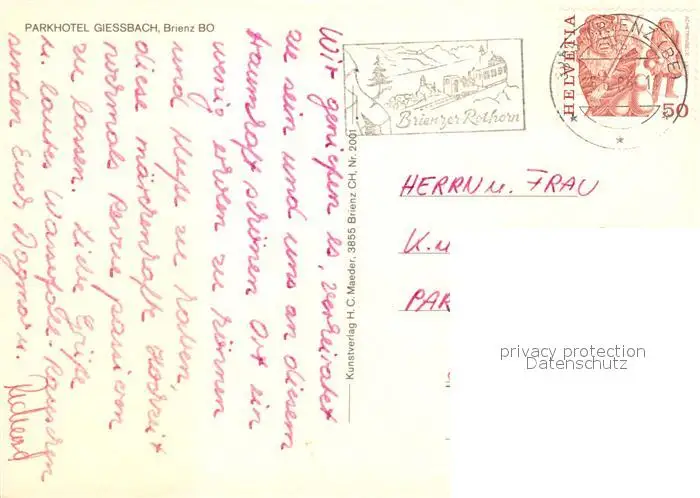 PARKHOTEL GIESSBACH, Brienz BO
Wir genießen es, verheiratet
zu sein und uns an diesem
traumhaft schönen Ort ein
wenig erholen zu können
und Muße zu haben,
diese märchenhafte Hochzeit
nochmals Revue passieren
zu lassen. Liebe Grüße
u. lautes Wasserfall-Rauschen
senden Euch Dagmar u.
Richard
Kunstverlag H. C. Maeder, 3855 Brienz CH, Nr. 2001
Brienzer Rothorn
HELVETIA
50
HERRN u. FRAU
K. u
PAR
privacy protection
Datenschutz